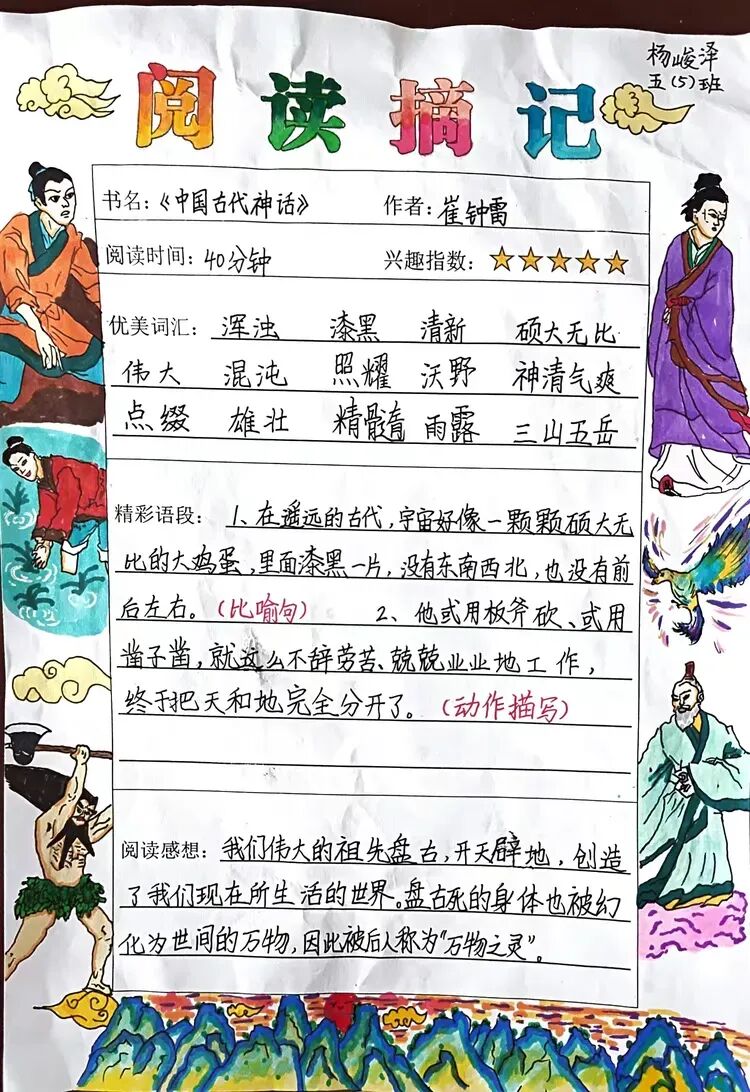 杨峻泽
五(5)班
阅读摘记
书名:《中国古代神话》 作者:崔钟雷
阅读时间:40分钟 兴趣指数:★★★★★
优美词汇: 浑浊 漆黑 清新 硕大无比
伟大 混沌 照耀 沃野 神清气爽
点缀 雄壮 精髓 雨露 三山五岳
精彩语段: 1、在遥远的古代,宇宙好像一颗颗硕大无
比的大鸡蛋,里面漆黑一片,没有东南西北,也没有前
后左右。(比喻句) 2、他或用板斧砍、或用
凿子凿,就这么不辞劳苦、兢兢业业地工作,
终于把天和地完全分开了。(动作描写)
阅读感想:我们伟大的祖先盘古,开天辟地,创造
了我们现在所生活的世界。盘古死的身体也被幻
化为世间的万物,因此被后人称为“万物之灵”。